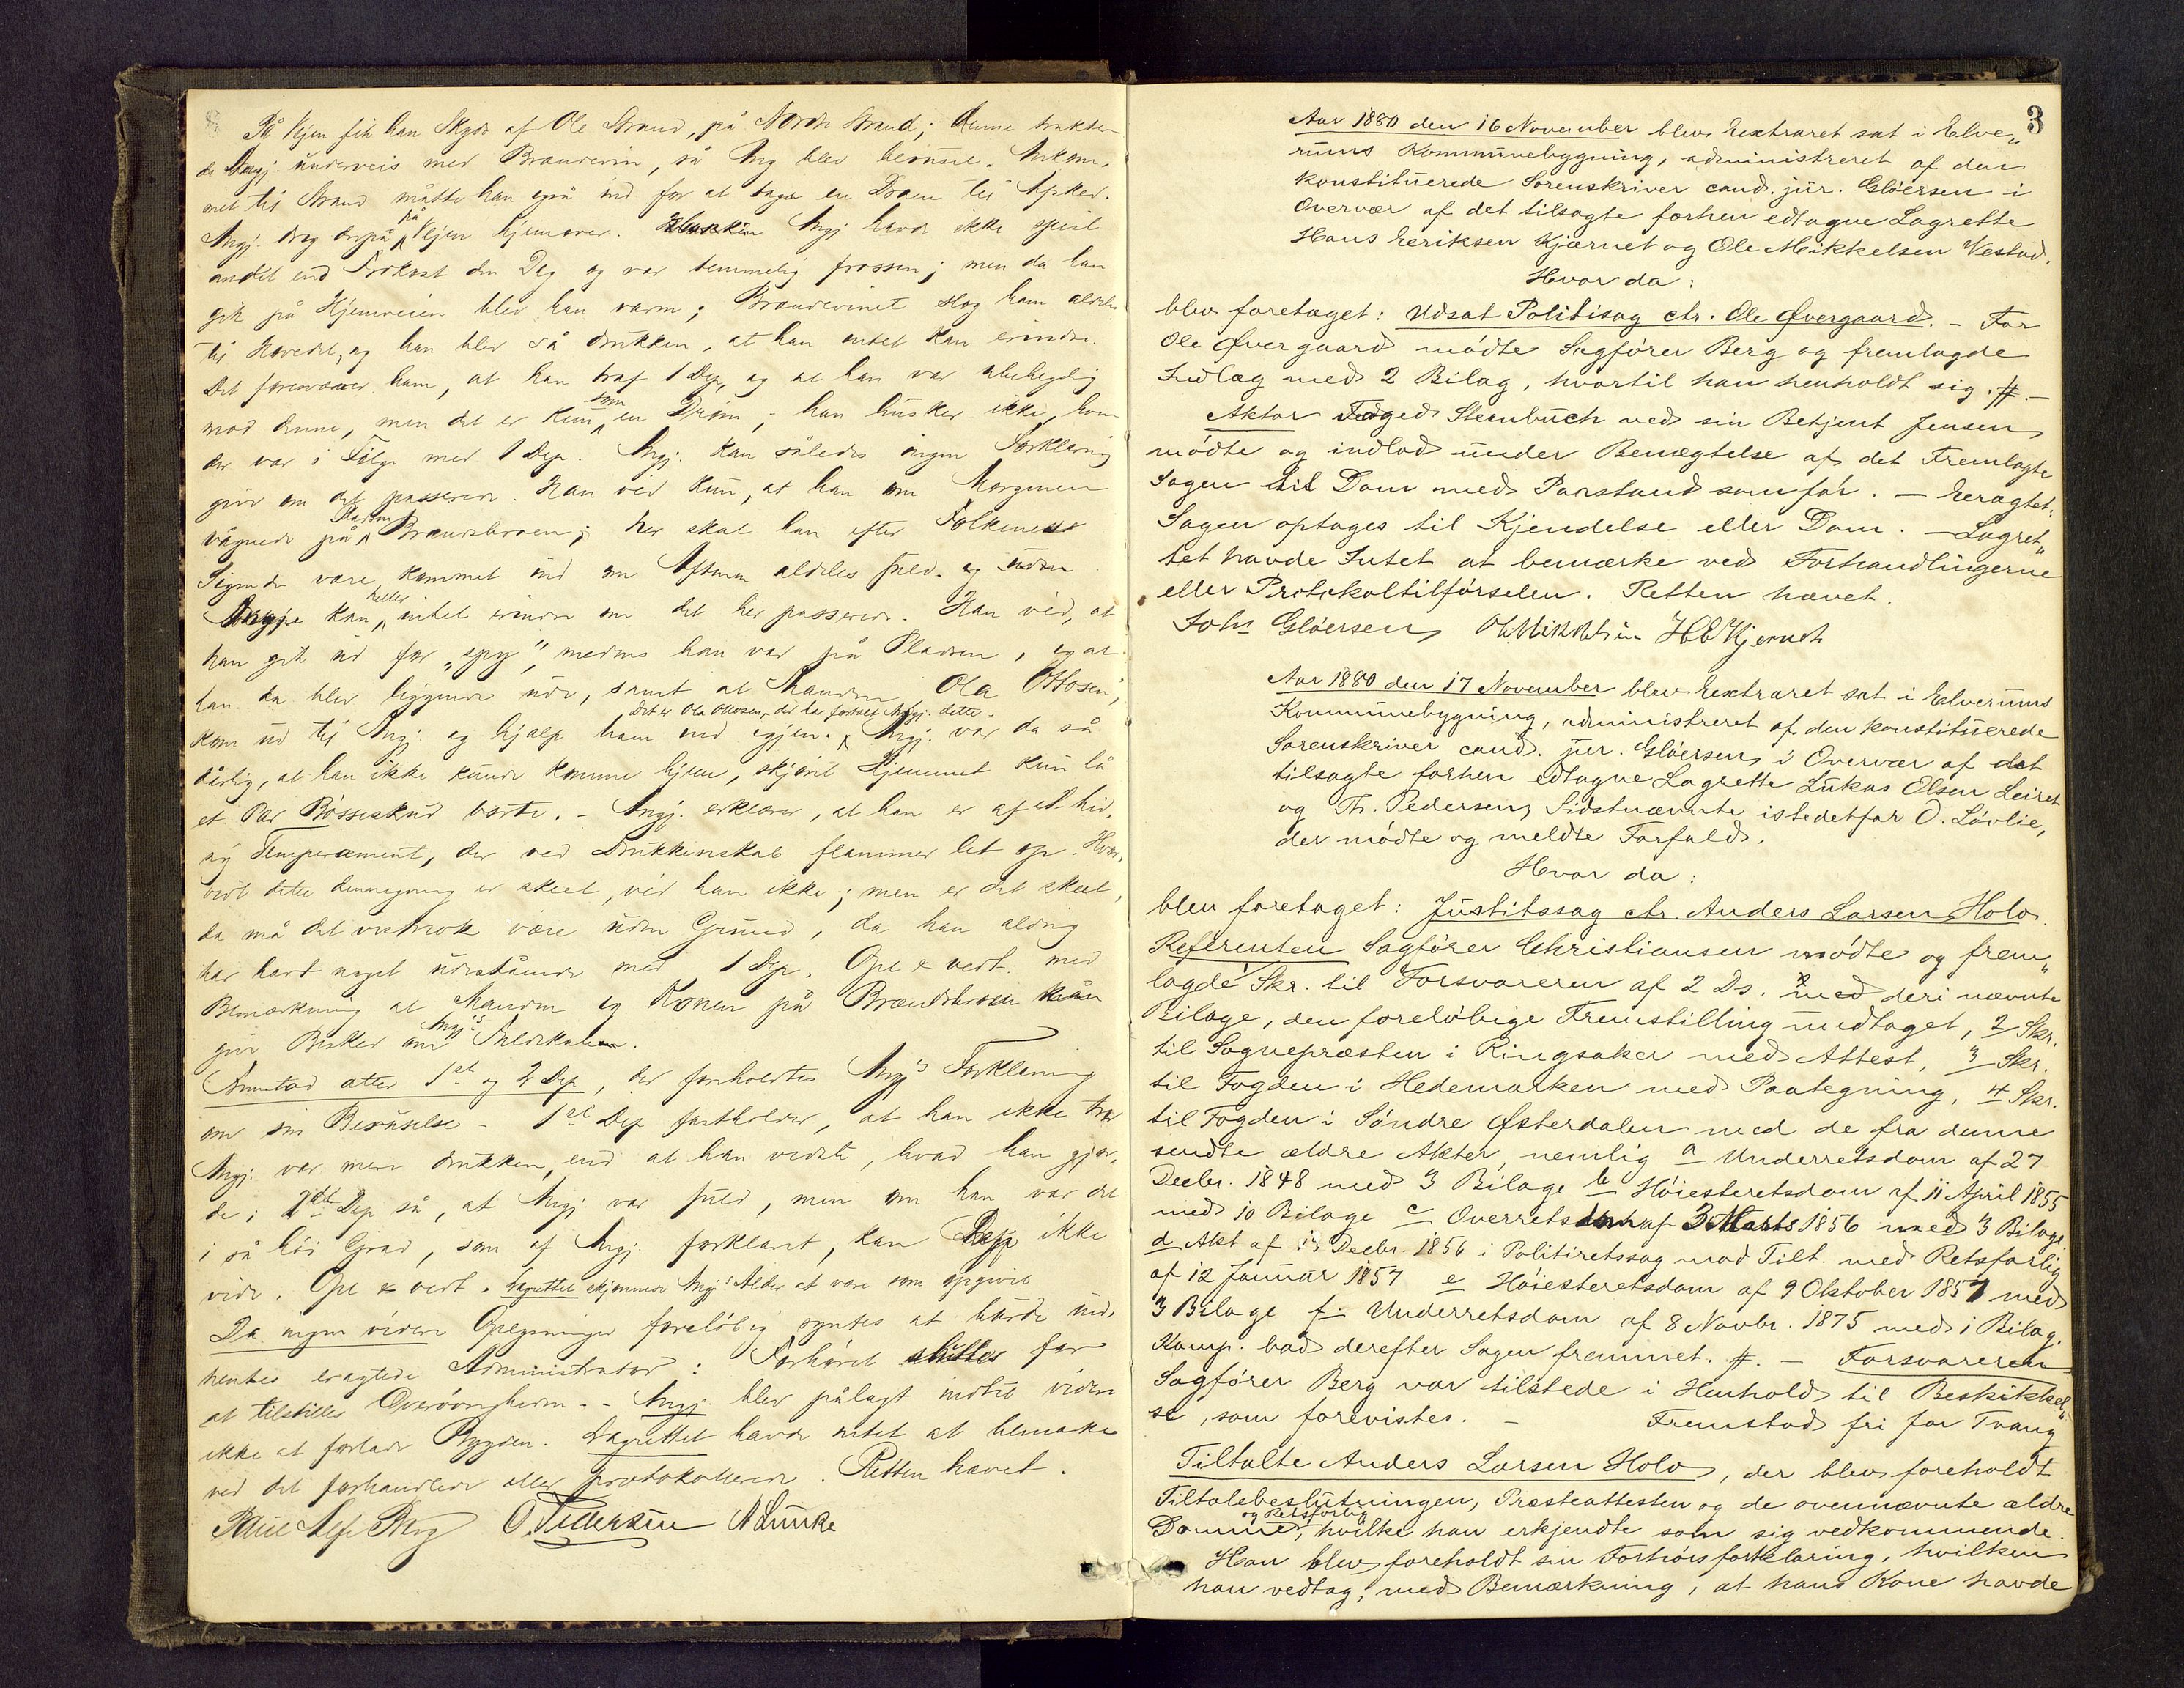 På Vejen fik han Skyds af Ole Strand, på Nordre Strand; denne trakte-
de Angj. underveis med Brændevin, så Ang blev beruset. Ankom-
met til Strand måtte han også ind for at tage en Dram til Afsked.
Angj. drog derpå på Vejen hjemover. Angj havde ikke spist
andet end Frokost den Dag og var temmelig frossen; men da han
gik på Hjemveien blev han varm; Brændevinet slog ham aldeles
til Hovedet, og han blev så drukken, at han intet kan erindre.
Det foresvæver ham, at han traf 1 Dep, og at han var ubehagelig
mod denne, men det er kun som en Drøm; han husker ikke, hvem
der var i Følge med 1 Dep. Angj. kan således ingen Forklaring
give om det passerede. Han ved kun, at han om Morgenen
vågnede på Pladsen Brændsbroen; her skal han efter Folkenes
Sigende være kommet ind om Aftenen aldeles fuld. og
Angj. kan heller intet erindre om det her passerede. Han véd, at
han gik ud for „spy“, medens han var på Pladsen, og at
han da blev liggende ude, samt at Manden, Ola Ottosen,
Det er Ola Ottosen, der har fortalt Angj. dette.
kom ud til Angj. og hjalp ham ind igjen. Angj. var da så
dårlig, at han ikke kunde komme hjem, skjønt Hjemmet kun lå
et Par Bøsseskud borte. - Angj. erklærer, at han er af et hid-
sig Temperament, der ved Drukkenskab flammer let op. Hvor-
vidt dette er skeet, véd han ikke; men er det skeet,
da må det vistnok være uden Grund, da han aldrig
har havt noget udestående med 1 Dep. Opl & vedt. med
Bemærkning at Manden og Konen på Brændsbroen kan
give Besked om Angj's Ædruskaben.
Fremstod atter 1ste og 2 Dep, der foreholdtes Angj's Forklaring
om sin Beruselse - 1ste Dep fastholder, at han ikke tror
Angj. var mere drukken, end at han vidste, hvad han gjor-
de; 2den Dep så, at Angj var fuld, men om han var det
i så høi Grad, som af Angj. forklaret, kan Dep ikke
vide. Opl & vedt. Lagrettet skjønnede Angj's Alder at være som opgivet
Da ingen videre Oplysninger foreløbig syntes at burde ind-
hentes eragtede Administrator: Forhøret sluttes for
at tilstilles Øvrigheden. - Angj. blev pålagt indtil videre
ikke at forlade Bygden. Lagrettet havde intet at bemærke
ved det forhandlede eller protokollerede. Retten hævet.
Berg O. Pedersen A Lunke
3
Aar 1880 den 16 November blev Extraret sat i Elve„
rums Kommunebygning, administreret af den
konstituerede Sorenskriver cand. jur. Gløersen i
Overvær af det tilsagte forhen edtagne Lagrette
Hans Eeriksen Kjærnet og Ole Mikkelsen Vestad.
Hvor da:
blev foretaget: Udsat Politisag ctr. Ole Øvergaard. - For
Ole Øvergaard mødte Sagfører Berg og fremlagde
Indlæg med 2 Bilag, hvortil han henholdt sig. #. -
Aktor Foged Sternbuch ved sin Betjent Jensen
mødte og indlod under Benægtelse af det Fremlagte
Sagen til Dom med Paastand som før. - Eragtet:
Sagen optages til Kjendelse eller Dom. - Lagret„
tet havde Intet at bemærke ved Forhandlingerne
eller Protokoltilførselen. Retten hævet.
Johs Gløersen O Mikkelsen H E Kjernet
Aar 1880 den 17 November blev Extraret sat i Elverums
Kommunebygning, administreret af den konstituerede
Sorenskriver cand. jur. Gløersen, i Overvær af det
tilsagte forhen edtagne Lagrette Lukas Olsen Leiret
og Th. Pedersen, Sidstnævnte istedetfor O. Løvlie,
der mødte og meldte Forfald.
Hvor da:
blev foretaget: Justitssag ctr. Anders Larsen Holo.
Referenten Sagfører Christiansen mødte og frem„
lagde 1 Skr. til Forsvareren af 2 Ds. med deri nævnte
Bilage, den foreløbige Fremstilling undtaget, 2 Skr.
til Sognepræsten i Ringsaker med Attest, 3 Skr.
til Fogden i Hedemarken med Paategning, 4 Skr.
til Fogden i Søndre Østerdalen med de fra denne
sendte ældre Akter, nemlig a Underretsdom af 27
Decbr. 1848 med 3 Bilage b Høiesteretsdom af 11 April 1855
med 10 Bilage c Overretsdom af 3 Marts 1856 med 3 Bilage
d Akt af 15 Decbr. 1856 i Politiretssag mod Tilt. med Retsforlig
af 12 Januar 1857 e Høiesteretsdom af 9 Oktober 1857 med
3 Bilage f Underretsdom af 8 Novbr. 1875 med 1 Bilag.
Komp. bad derefter Sagen fremmet. #. - Forsvareren
Sagfører Berg var tilstede i Henhold til Beskikkel„
se, som forevistes. - Fremstod fri for Tvang
Tiltalte Anders Larsen Holo, der blev foreholdt
Tiltalebeslutningen, Præsteattesten og de ovennævnte ældre
og Retsforlig
Domme, hvilke han erkjendte som sig vedkommende.
Han blev foreholdt sin Forhørsforklaring, hvilken
han vedtog, med Bemærkning, at hans Kone havde